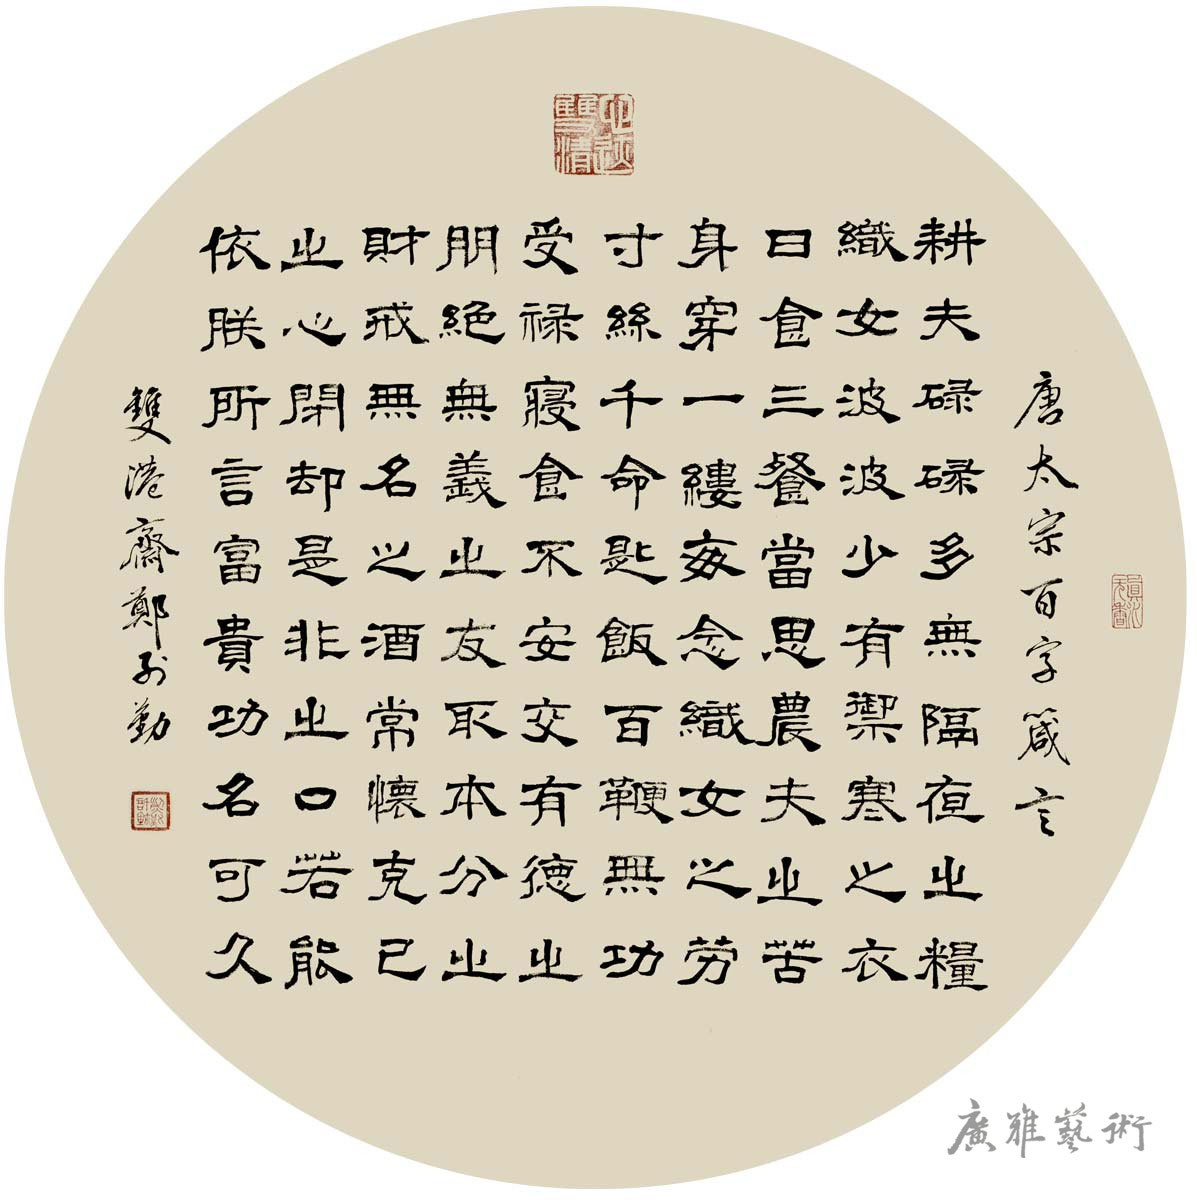 心迹雙清
唐太宗百字箴言
耕夫碌碌多無隔夜之糧
織女波波少有禦寒之衣
日食三餐當思農夫之苦
身穿一縷每念織女之劳
寸絲千命匙飯百鞭無功
受禄寢食不安交有德之
朋絕無義之友取本分之
財戒無名之酒常懷克己
之心閉却是非之口若能
依朕所言富貴功名可久
雙港齋鄭勤
廣雅藝術